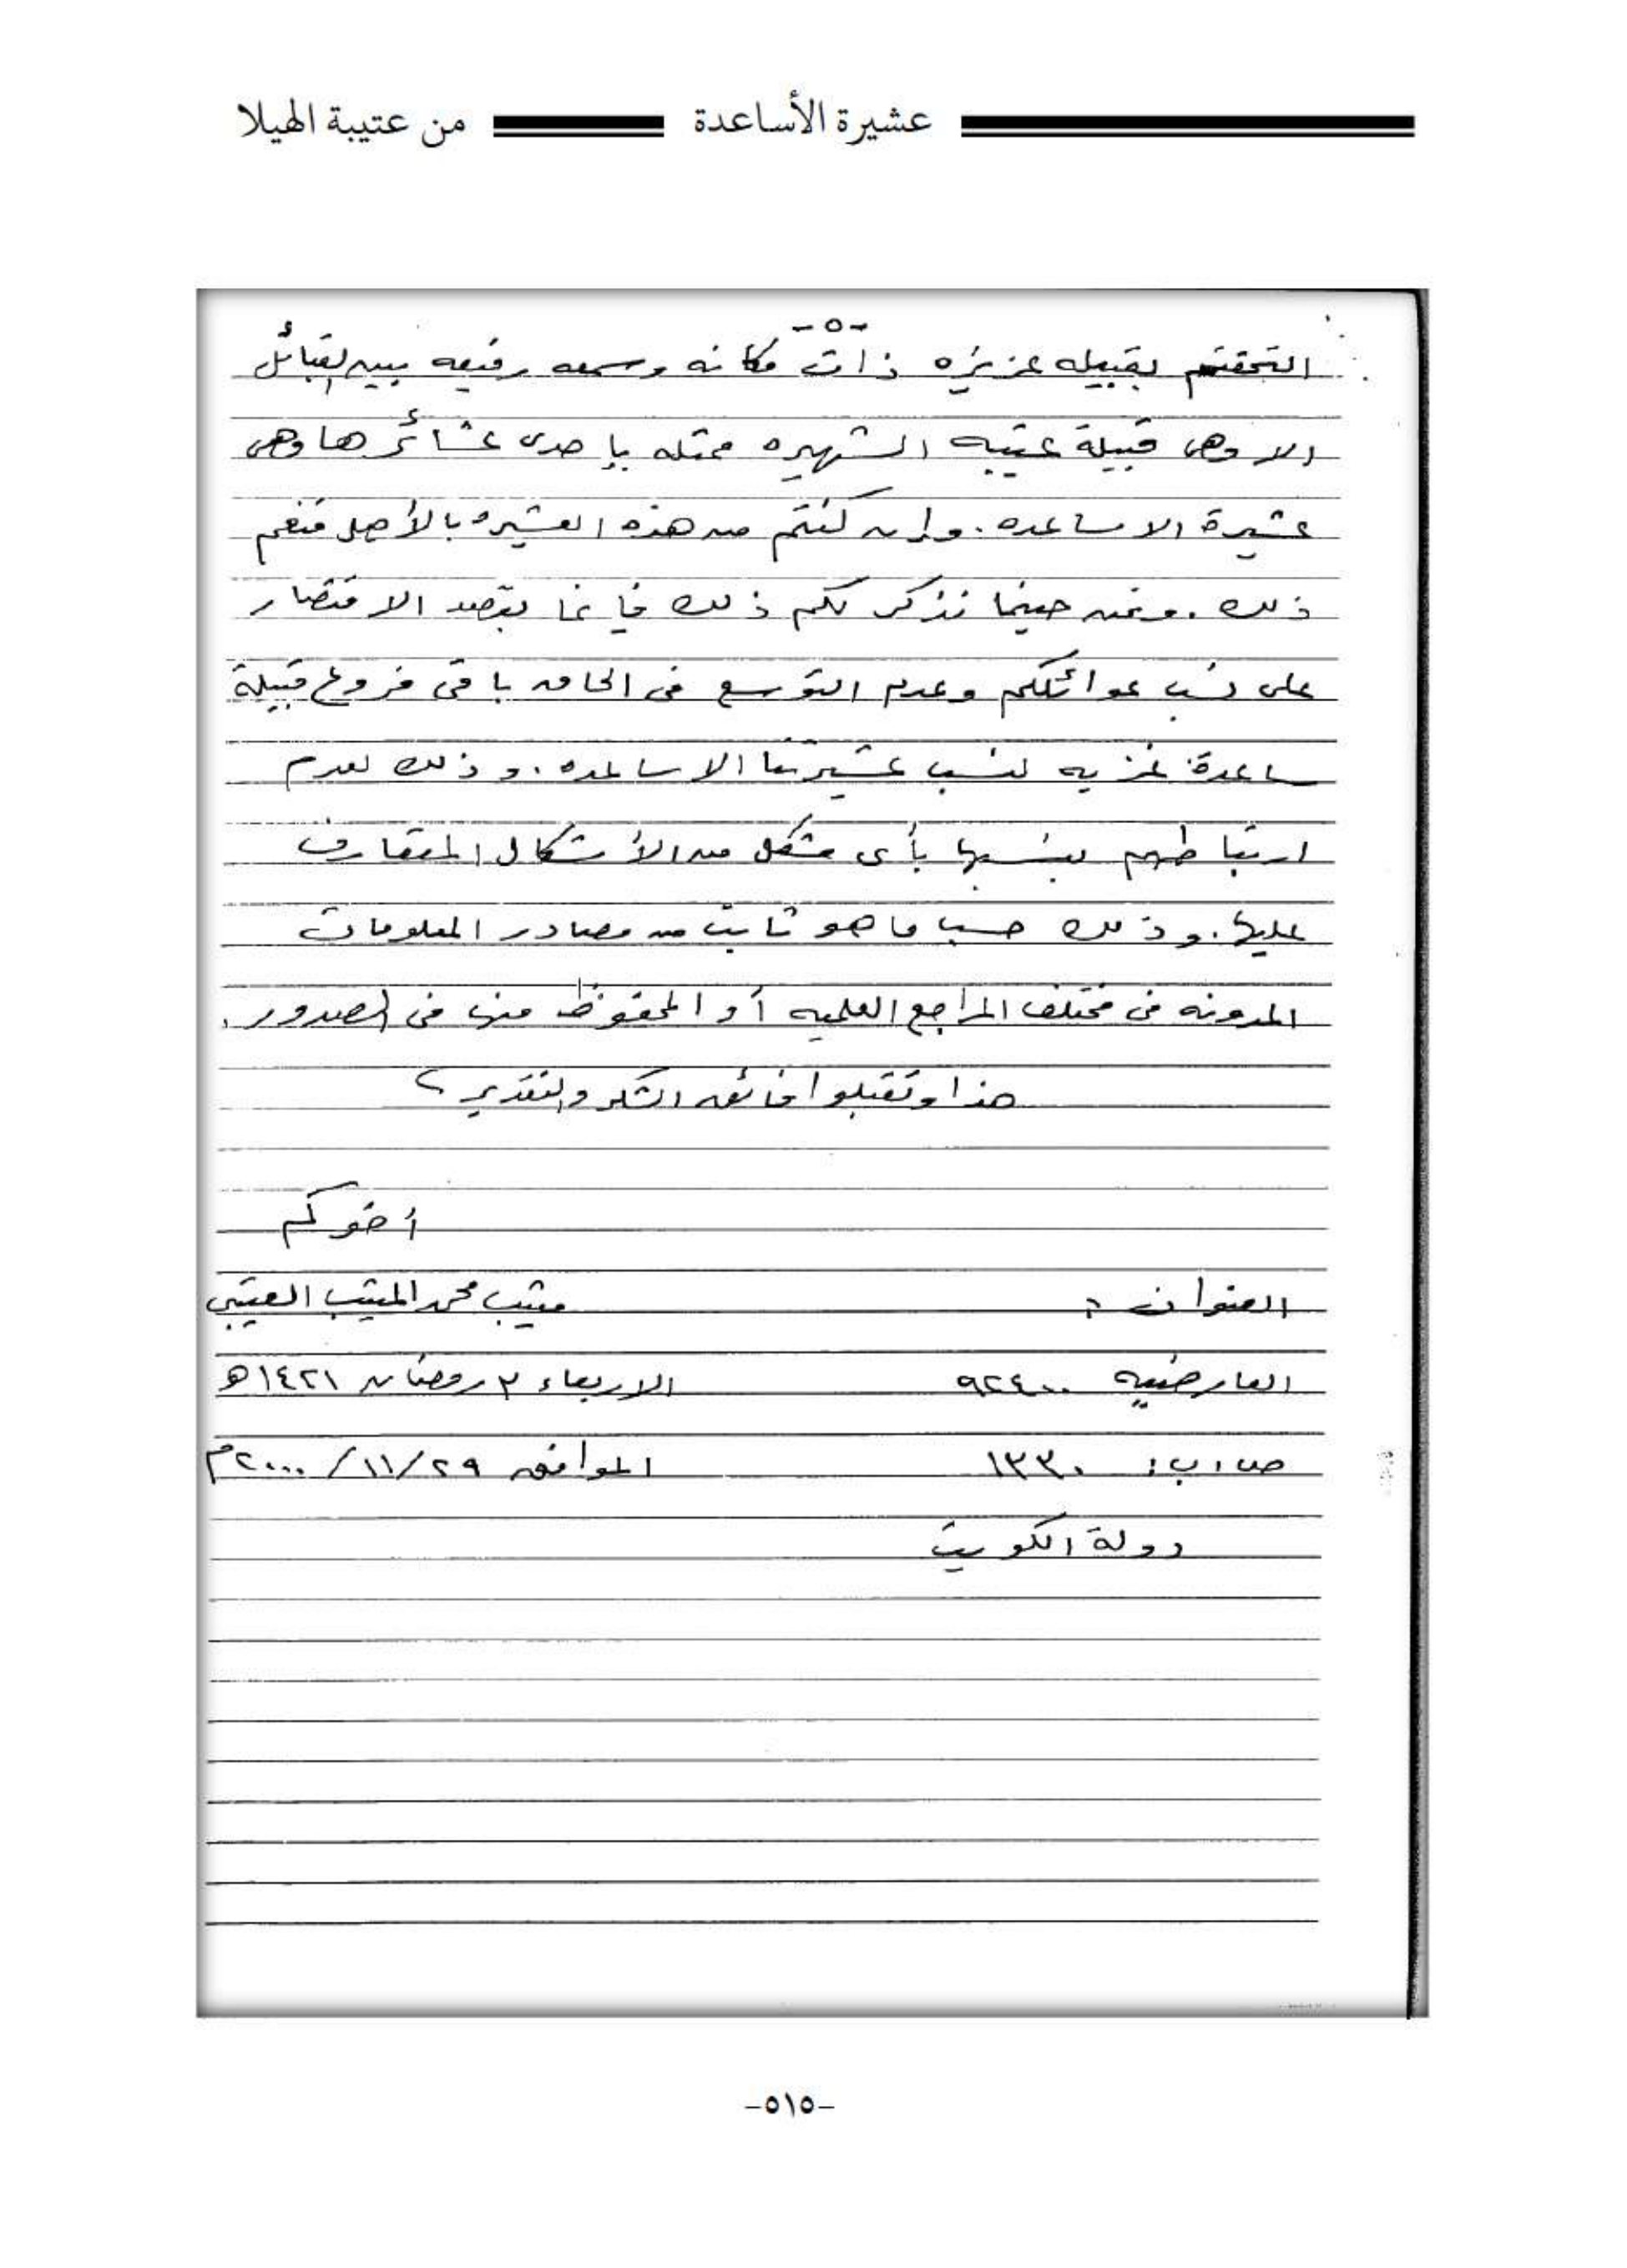 عشيرة الأساعدة من عتيبة الهيلا
-٥-
التحقتم بقبيله عزيزه ذات مكانه وسمعه رفيعه بين القبائل
الا وهى قبيلة عتيبه الشهيره ممثله بإحدى عشائرها وهى
عشيرة الاساعده . وإن كنتم من هذه العشيره بالأصل فنعم
ذلك . ونحن حينما نذكر لكم ذلك فإنما بقصد الاقتصار
على نسب عوائلكم وعدم التوسع فى الحاق باقى فروع قبيلة
ساعدة غزيه لنسب عشيرتنا الاساعده . وذلك لعدم
ارتباطهم بنسبها بأى شكل من الأشكال المتعارف
عليها . وذلك حسب ما هو ثابت من مصادر المعلومات
المدونه فى مختلف المراجع العلميه أو المحفوظ منها فى الصدور .
هذا وتقبلوا فائق الشكر والتقدير ؟
أخوكم
العنوان : متيب محمد المتيب العتيبي
العارضيه ٩٢٤٠٠ الاربعاء ٣ رمضان ١٤٢١ هـ
ص . ب : ١٣٣٠ الموافق ٢٩ / ١١ / ٢٠٠٠ م
دولة الكويت
-٥١٥-